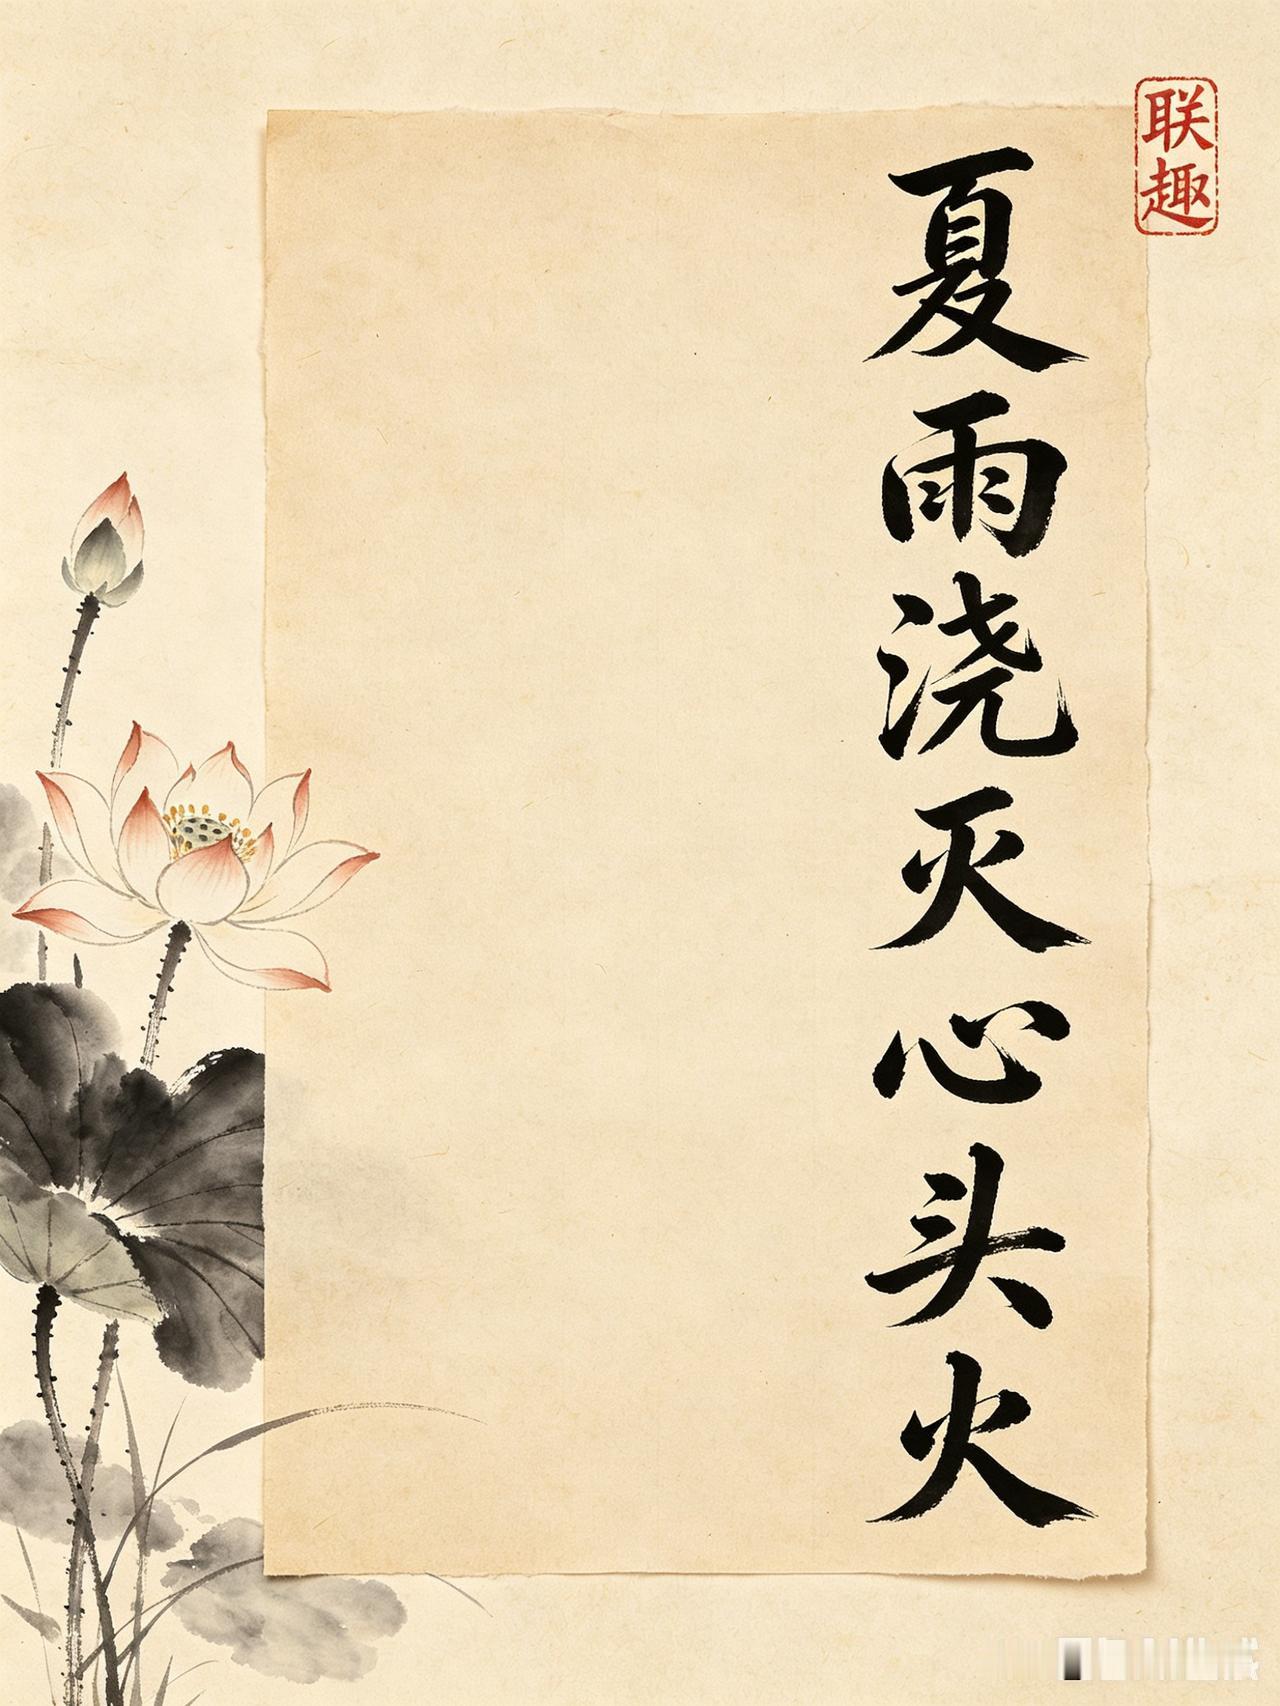 联趣
夏雨浇灭心头火